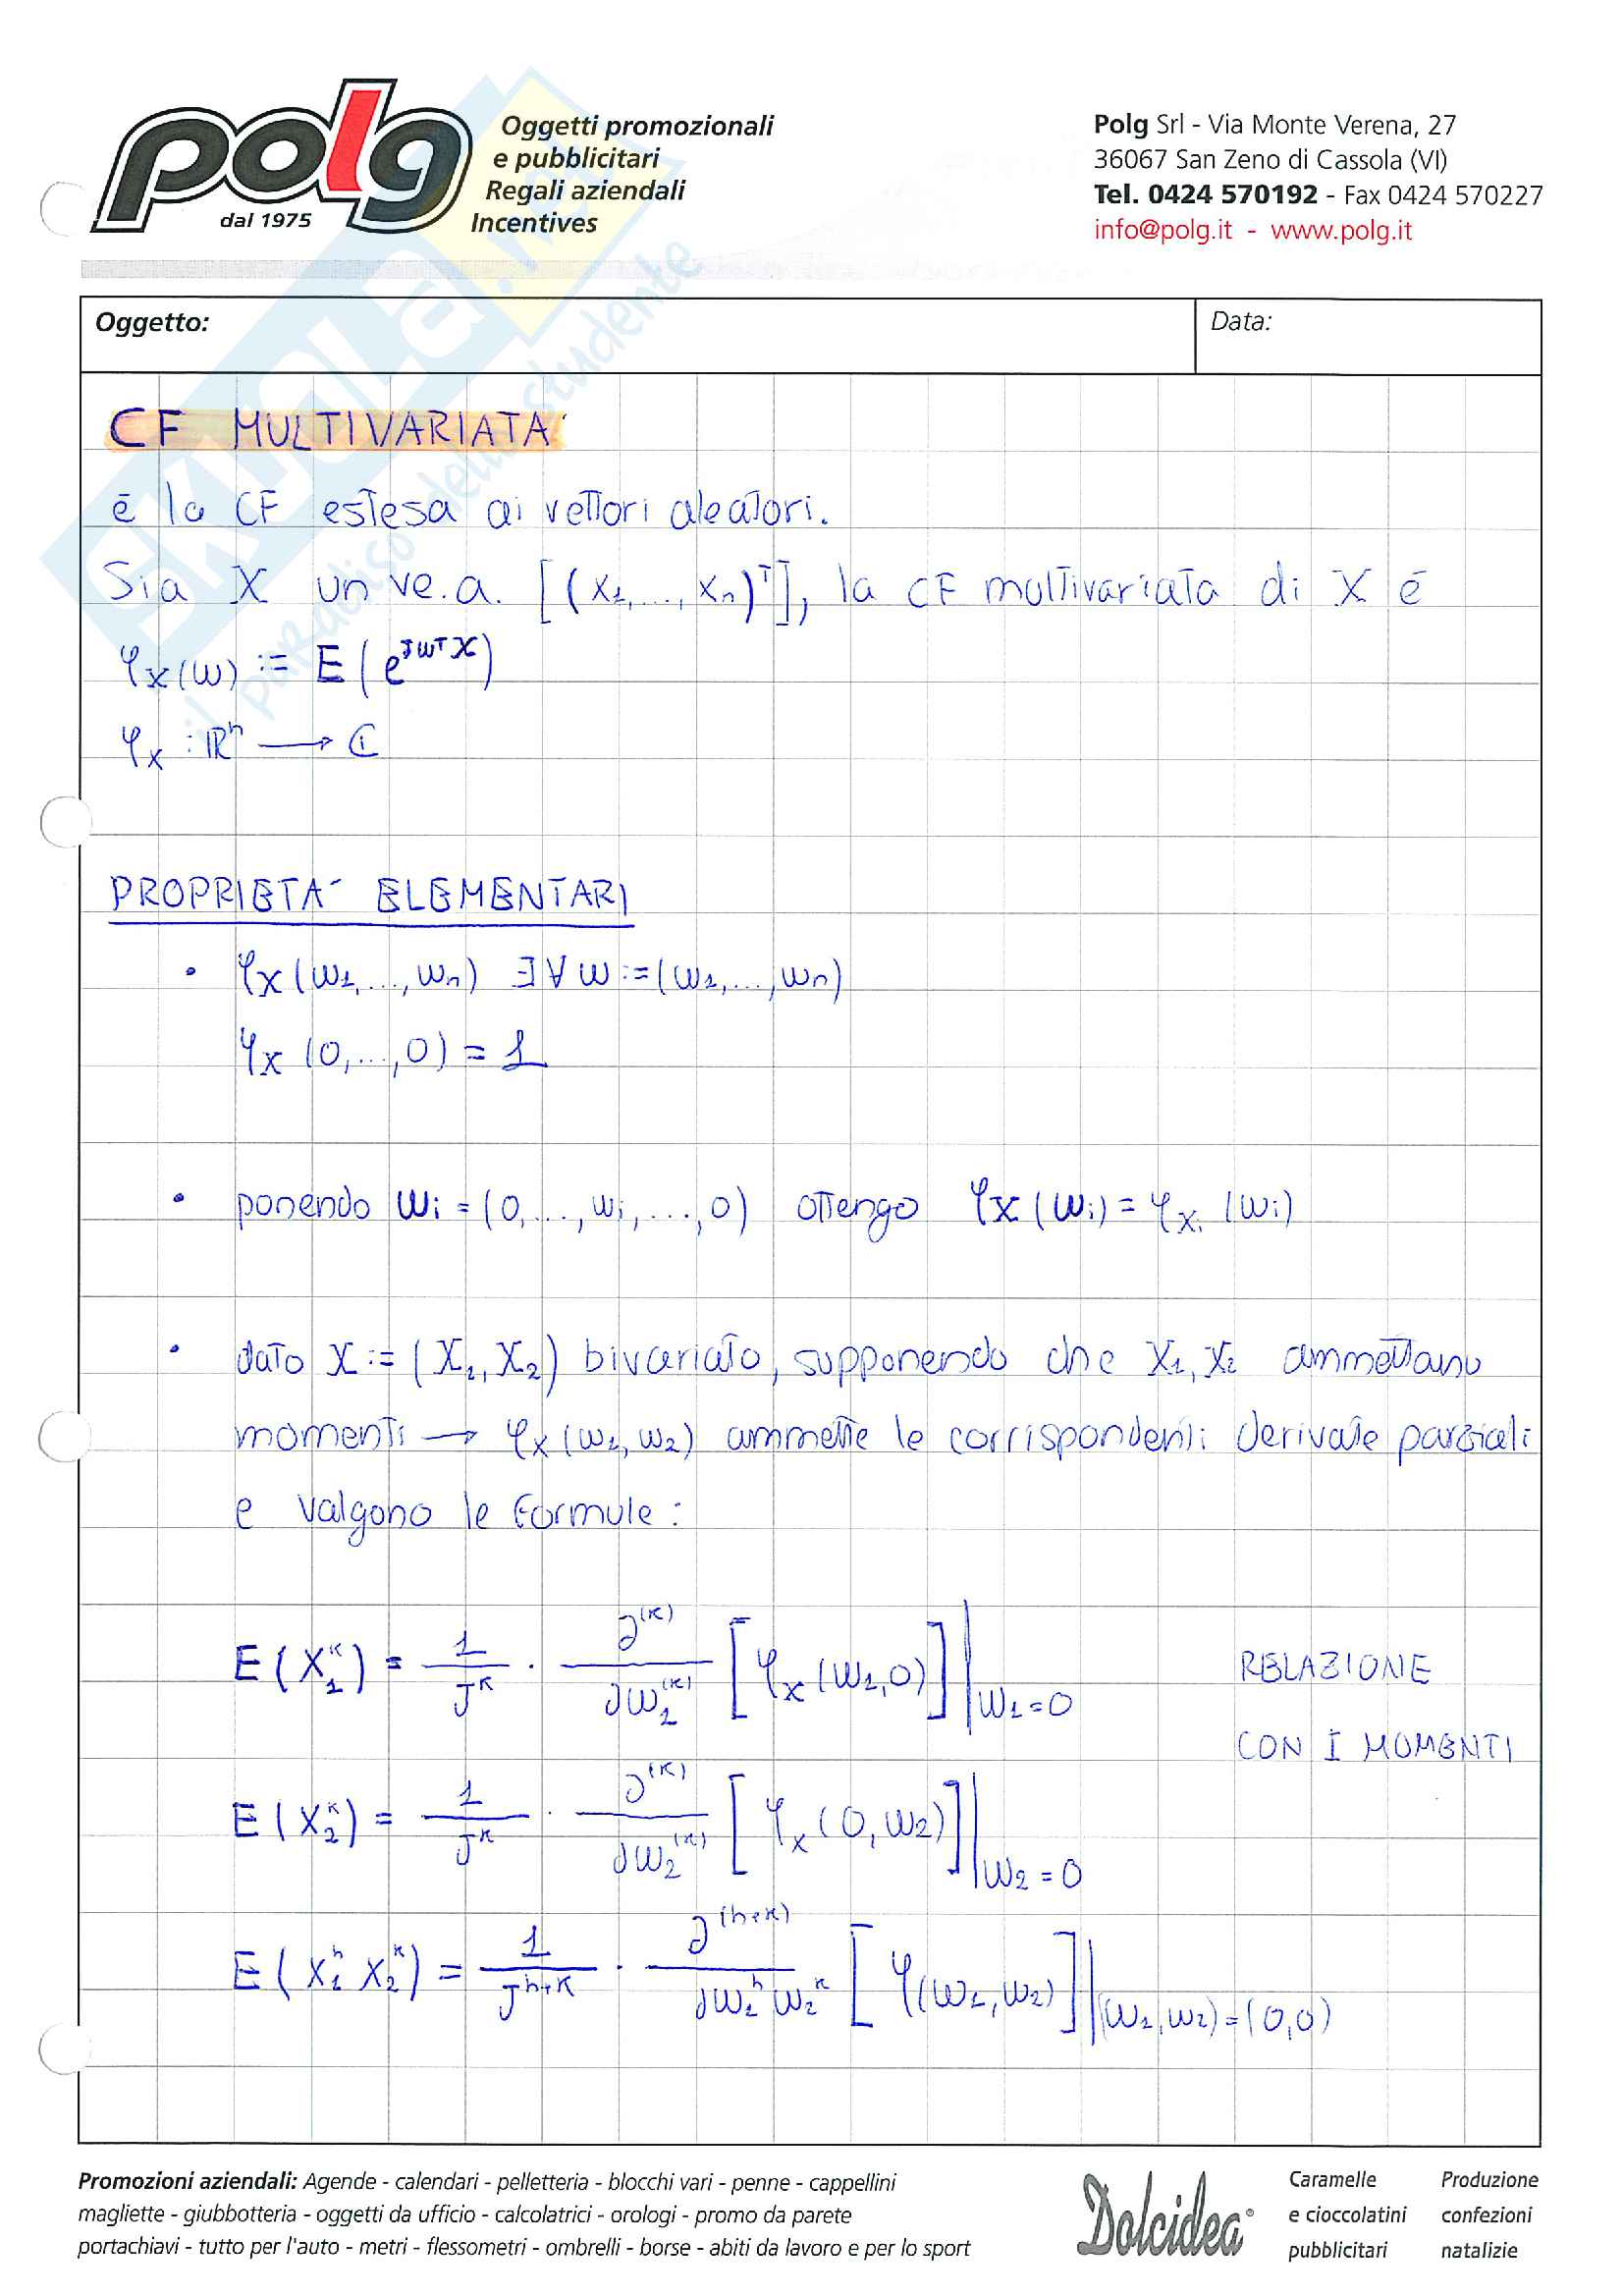 polg
dal 1975
Oggetti promozionali
e pubblicitari
Regali aziendali
Incentives
Polg Srl - Via Monte Verena, 27
36067 San Zeno di Cassola (VI)
Tel. 0424 570192 - Fax 0424 570227
info@polg.it - www.polg.it
SKUOLA.net
il paradiso dello studente
Oggetto:
Data:
CF MULTIVARIATA
è la CF estesa ai vettori aleatori.
Sia X un ve.a. [(X₁,...,Xn)ᵀ], la CF multivariata di X è
φX(ω) := E(e^{jωᵀX})
φX : ℝⁿ → ℂ
PROPRIETA' ELEMENTARI
• φX(ω₁,...,ωn) ∃ ∀ ω:=(ω₁,...,ωn)
φX(0,...,0) = 1
• ponendo ωi = (0,...,ωi,...,0) ottengo φX(ωi) = φXi(ωi)
• dato X := (X₁,X₂) bivariato, supponendo che X₁,X₂ ammettano
momenti → φX(ω₁,ω₂) ammette le corrispondenti derivate parziali
e valgono le formule:
E(X₁^k) = 1/J^k · ∂^(k)/∂ω₁^(k) [φX(ω₁,0)]|ω₁=0 RELAZIONE
CON I MOMENTI
E(X₂^k) = 1/J^k · ∂^(k)/∂ω₂^(k) [φX(0,ω₂)]|ω₂=0
E(X₁^h X₂^k) = 1/J^{h+k} · ∂^(h+k)/∂ω₁^h ω₂^k [φ(ω₁,ω₂)]|(ω₁,ω₂)=(0,0)
Promozioni aziendali: Agende - calendari - pelletteria - blocchi vari - penne - cappellini
magliette - giubbotteria - oggetti da ufficio - calcolatrici - orologi - promo da parete
portachiavi - tutto per l'auto - metri - flessometri - ombrelli - borse - abiti da lavoro e per lo sport
Dolcidea®
Caramelle
e cioccolatini
pubblicitari
Produzione
confezioni
natalizie